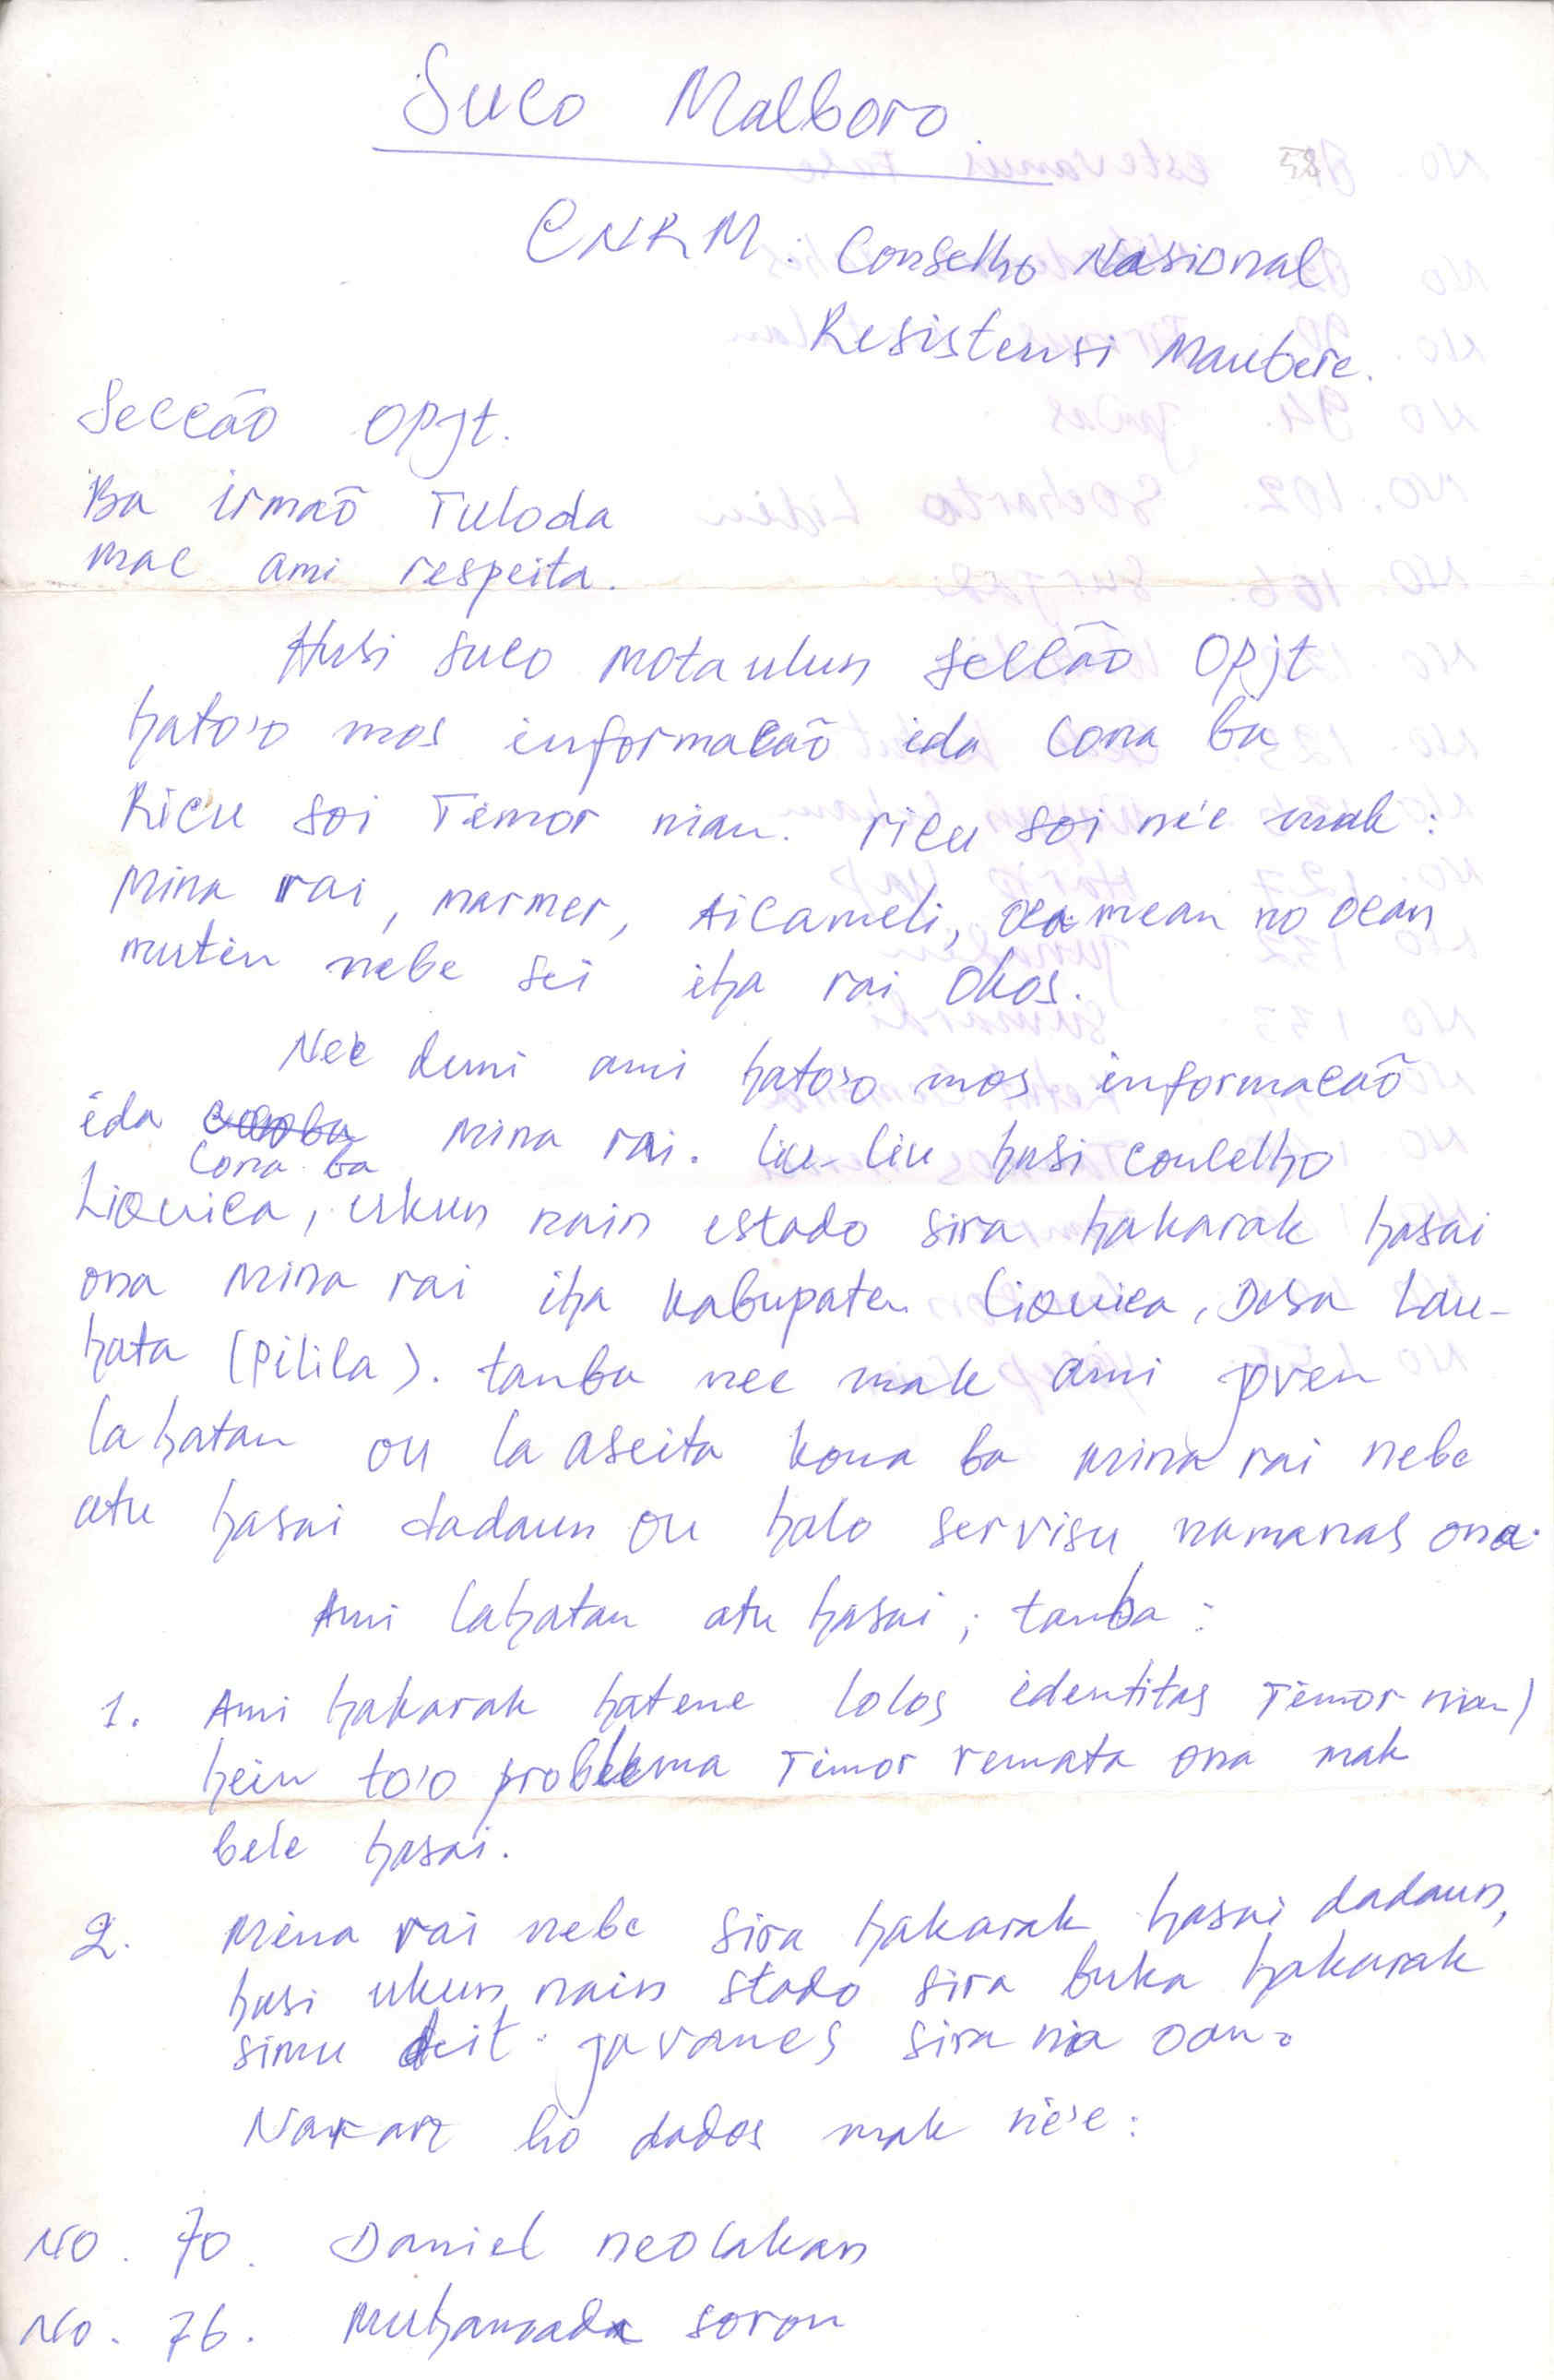 Suco Malboro
CNRM : Conselho Nasional
Resistensi Maubere.
Seccão OPJT.
Ba irmaõ Tuloda
mac ami respeita.
Husi suco motaulun seccão OPJT
hato'o mos informacaõ ida cona ba
Ricu soi Timor nian. ricu soi ne'e mak :
Mina rai, marmer, Aicameli, osa mean no osan
mutin nebe sei iha rai okos.
Nee duni ami hato'o mos informacaõ
ida cona ba mina rai. liu-liu husi concelho
Liquica, ukun nain estado sira hakarak hasai
ona mina rai iha kabupaten Liquica, Desa Lau-
hata (Pilila). tanba nee mak ami joven
la hatan ou la aseita kona ba mina rai nebe
atu hasai dadaun ou halo servisu namanas ona.
Ami lahatan atu hasai ; tanba :
1. Ami hakarak hatene lolos identitas Timor nian)
hein to'o problema Timor remata ona mak
bele hasai.
2. Mina rai nebe sira hakarak hasai dadaun,
husi ukun nain stado sira buka hakarak
simu deit javanes sira nia oan.
Naran ho dados mak ne'e :
No. 70. Daniel neolakan
No. 76. Muhamada soron